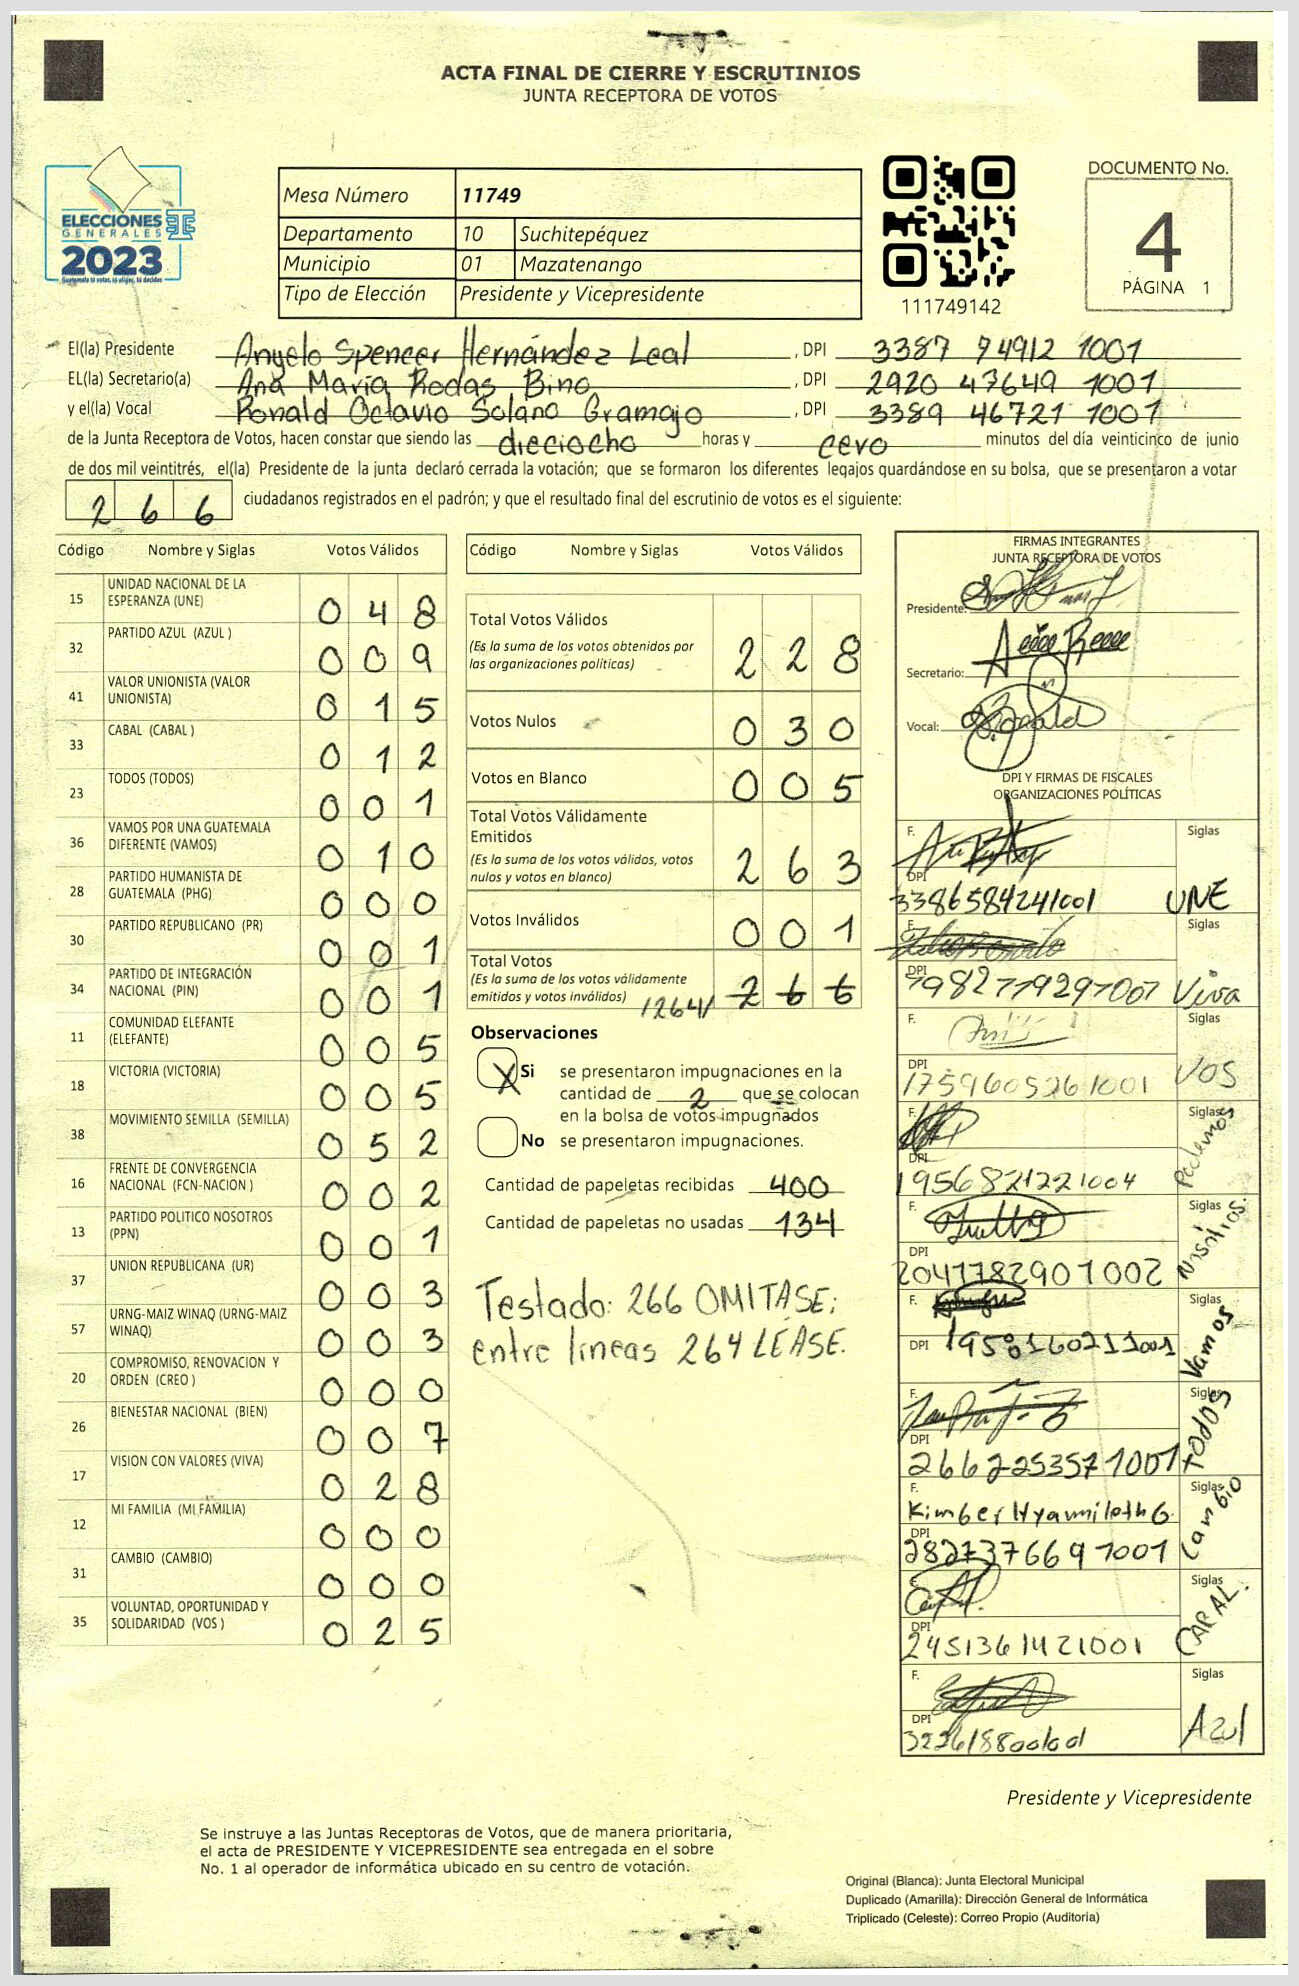 ACTA FINAL DE CIERRE Y ESCRUTINIOS
JUNTA RECEPTORA DE VOTOS
ELECCIONES
GENERALES
2023
Guatemala tú votas, tú eliges, tú decides
Mesa Número 11749
Departamento 10 Suchitepéquez
Municipio 01 Mazatenango
Tipo de Elección Presidente y Vicepresidente
111749142
DOCUMENTO No.
4
PÁGINA 1
El(la) Presidente Angelo Spencer Hernández Leal, DPI 3387 94912 1001
EL(la) Secretario(a) Ana María Rodas Bino, DPI 2920 47649 1001
y el(la) Vocal Ronald Octavio Solano Gramajo, DPI 3389 46721 1001
de la Junta Receptora de Votos, hacen constar que siendo las dieciocho horas y cero minutos del día veinticinco de junio
de dos mil veintitrés, el(la) Presidente de la junta declaró cerrada la votación; que se formaron los diferentes legajos guardándose en su bolsa, que se presentaron a votar
266 ciudadanos registrados en el padrón; y que el resultado final del escrutinio de votos es el siguiente:
Código Nombre y Siglas Votos Válidos
15 UNIDAD NACIONAL DE LA ESPERANZA (UNE) 048
32 PARTIDO AZUL (AZUL ) 009
41 VALOR UNIONISTA (VALOR UNIONISTA) 015
33 CABAL (CABAL ) 012
23 TODOS (TODOS) 001
36 VAMOS POR UNA GUATEMALA DIFERENTE (VAMOS) 010
28 PARTIDO HUMANISTA DE GUATEMALA (PHG) 000
30 PARTIDO REPUBLICANO (PR) 001
34 PARTIDO DE INTEGRACIÓN NACIONAL (PIN) 001
11 COMUNIDAD ELEFANTE (ELEFANTE) 005
18 VICTORIA (VICTORIA) 005
38 MOVIMIENTO SEMILLA (SEMILLA) 052
16 FRENTE DE CONVERGENCIA NACIONAL (FCN-NACION ) 002
13 PARTIDO POLITICO NOSOTROS (PPN) 001
37 UNION REPUBLICANA (UR) 003
57 URNG-MAIZ WINAQ (URNG-MAIZ WINAQ) 003
20 COMPROMISO, RENOVACION Y ORDEN (CREO ) 000
26 BIENESTAR NACIONAL (BIEN) 007
17 VISION CON VALORES (VIVA) 028
12 MI FAMILIA (MI FAMILIA) 000
31 CAMBIO (CAMBIO) 000
35 VOLUNTAD, OPORTUNIDAD Y SOLIDARIDAD (VOS ) 025
Código Nombre y Siglas Votos Válidos
Total Votos Válidos 228
(Es la suma de los votos obtenidos por
las organizaciones políticas)
Votos Nulos 030
Votos en Blanco 005
Total Votos Válidamente
Emitidos 263
(Es la suma de los votos válidos, votos
nulos y votos en blanco)
Votos Inválidos 001
Total Votos 266
(Es la suma de los votos válidamente
emitidos y votos inválidos) /264/
Observaciones
X Si se presentaron impugnaciones en la
cantidad de 2 que se colocan
en la bolsa de votos impugnados
No se presentaron impugnaciones.
Cantidad de papeletas recibidas 400
Cantidad de papeletas no usadas 134
Testado: 266 OMITASE;
entre lineas 264 LEASE.
FIRMAS INTEGRANTES
JUNTA RECEPTORA DE VOTOS
Presidente:
Secretario:
Vocal:
DPI Y FIRMAS DE FISCALES
ORGANIZACIONES POLÍTICAS
F. Siglas
DPI 3386584241001 UNE
F. Siglas
DPI Viva
F. Siglas
DPI 1759605261001 VOS
F. Siglas
DPI 1956821221004 Podemos
F. Siglas
DPI 2041782901002 Nosotros.
F. Siglas
DPI Vamos
F. Siglas
DPI 2662253571001 TODOS
F. Siglas
DPI 2827376691001 Cambio
F. Siglas
DPI 2451361421001 CABAL.
F. Siglas
DPI Azul
Presidente y Vicepresidente
Se instruye a las Juntas Receptoras de Votos, que de manera prioritaria,
el acta de PRESIDENTE Y VICEPRESIDENTE sea entregada en el sobre
No. 1 al operador de informática ubicado en su centro de votación.
Original (Blanca): Junta Electoral Municipal
Duplicado (Amarilla): Dirección General de Informática
Triplicado (Celeste): Correo Propio (Auditoria)